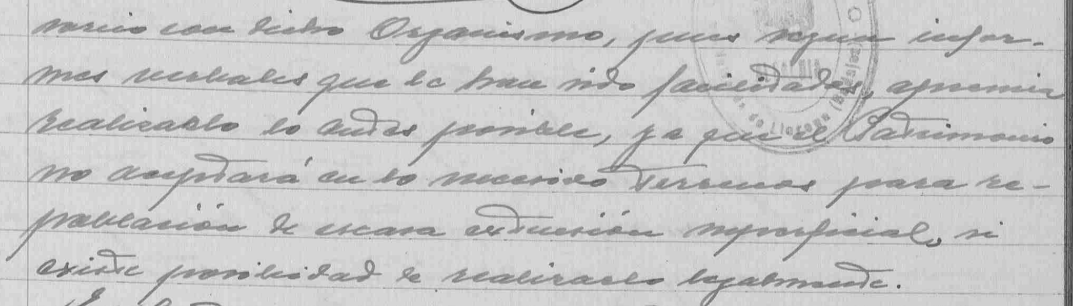 sorcio con dicho Organismo, pues según infor-
mes verbales que le han sido facilitados, apremia
realizarlo lo antes posible, ya que el Patrimonio
no aceptará en lo sucesivo terrenos para re-
población de escasa extensión superficial, si
existe posibilidad de realizarlo legalmente.